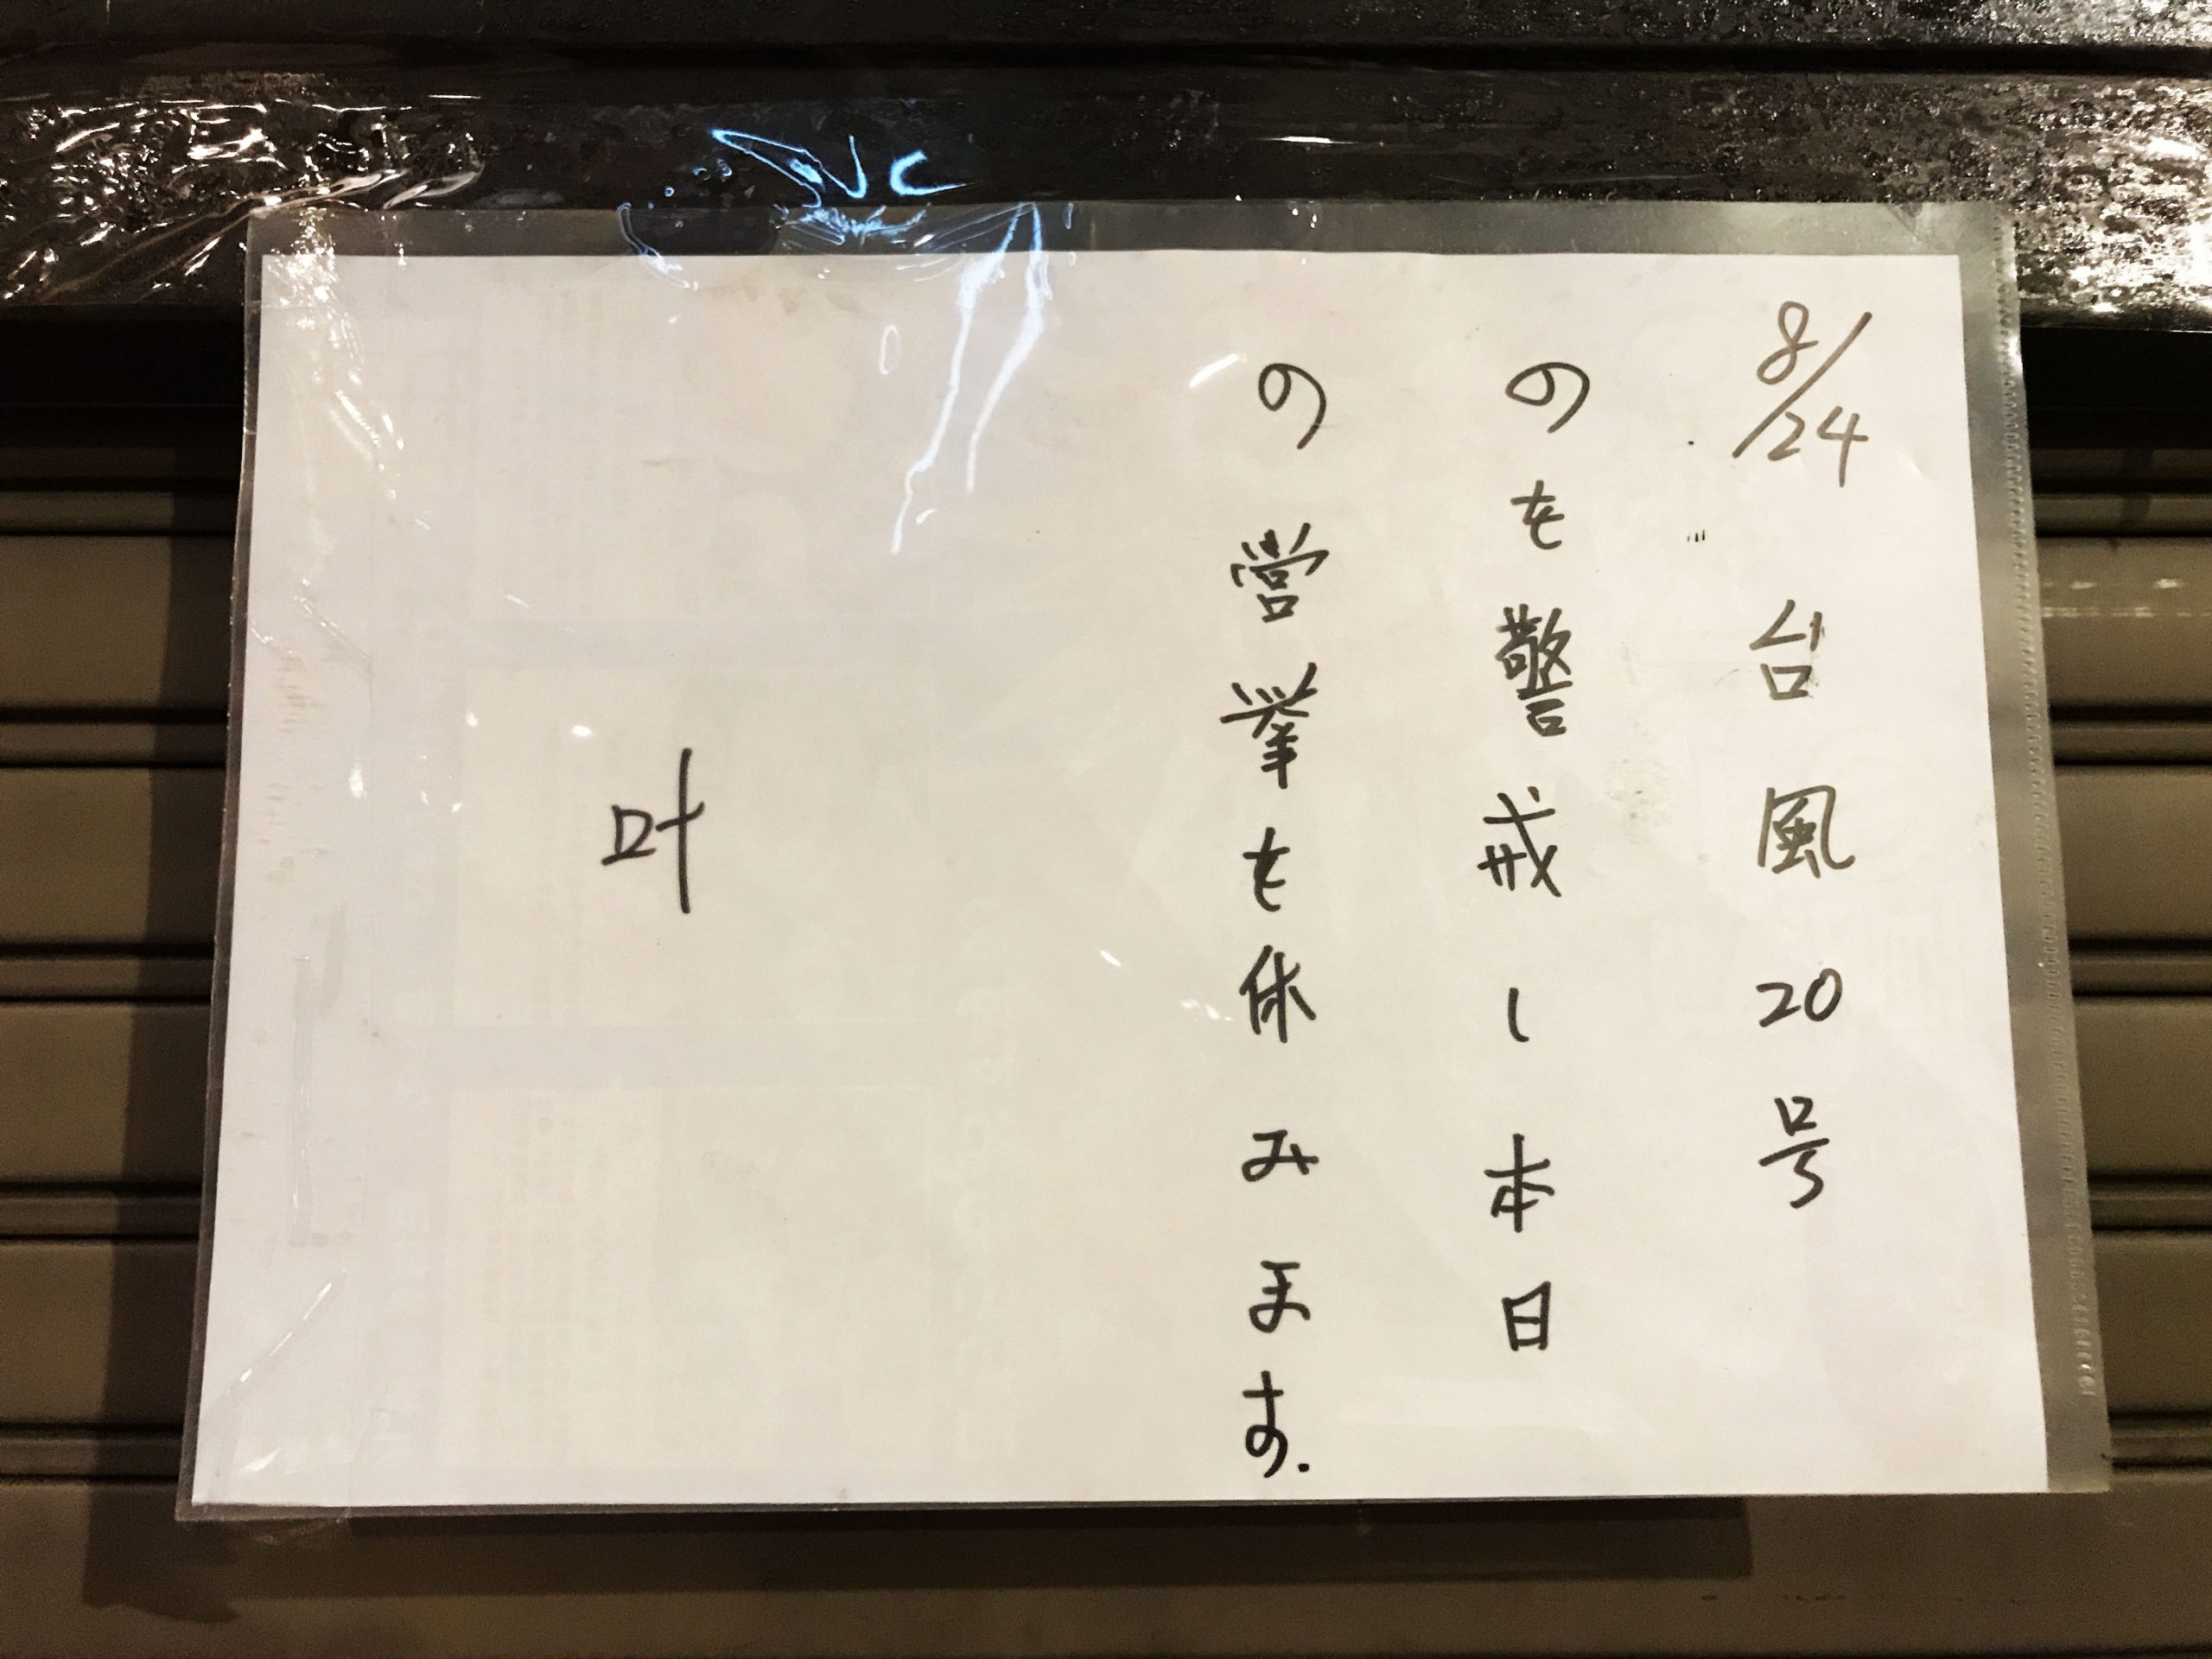 8/24 台風20号
のを警戒し本日
の営業を休みます.
叶